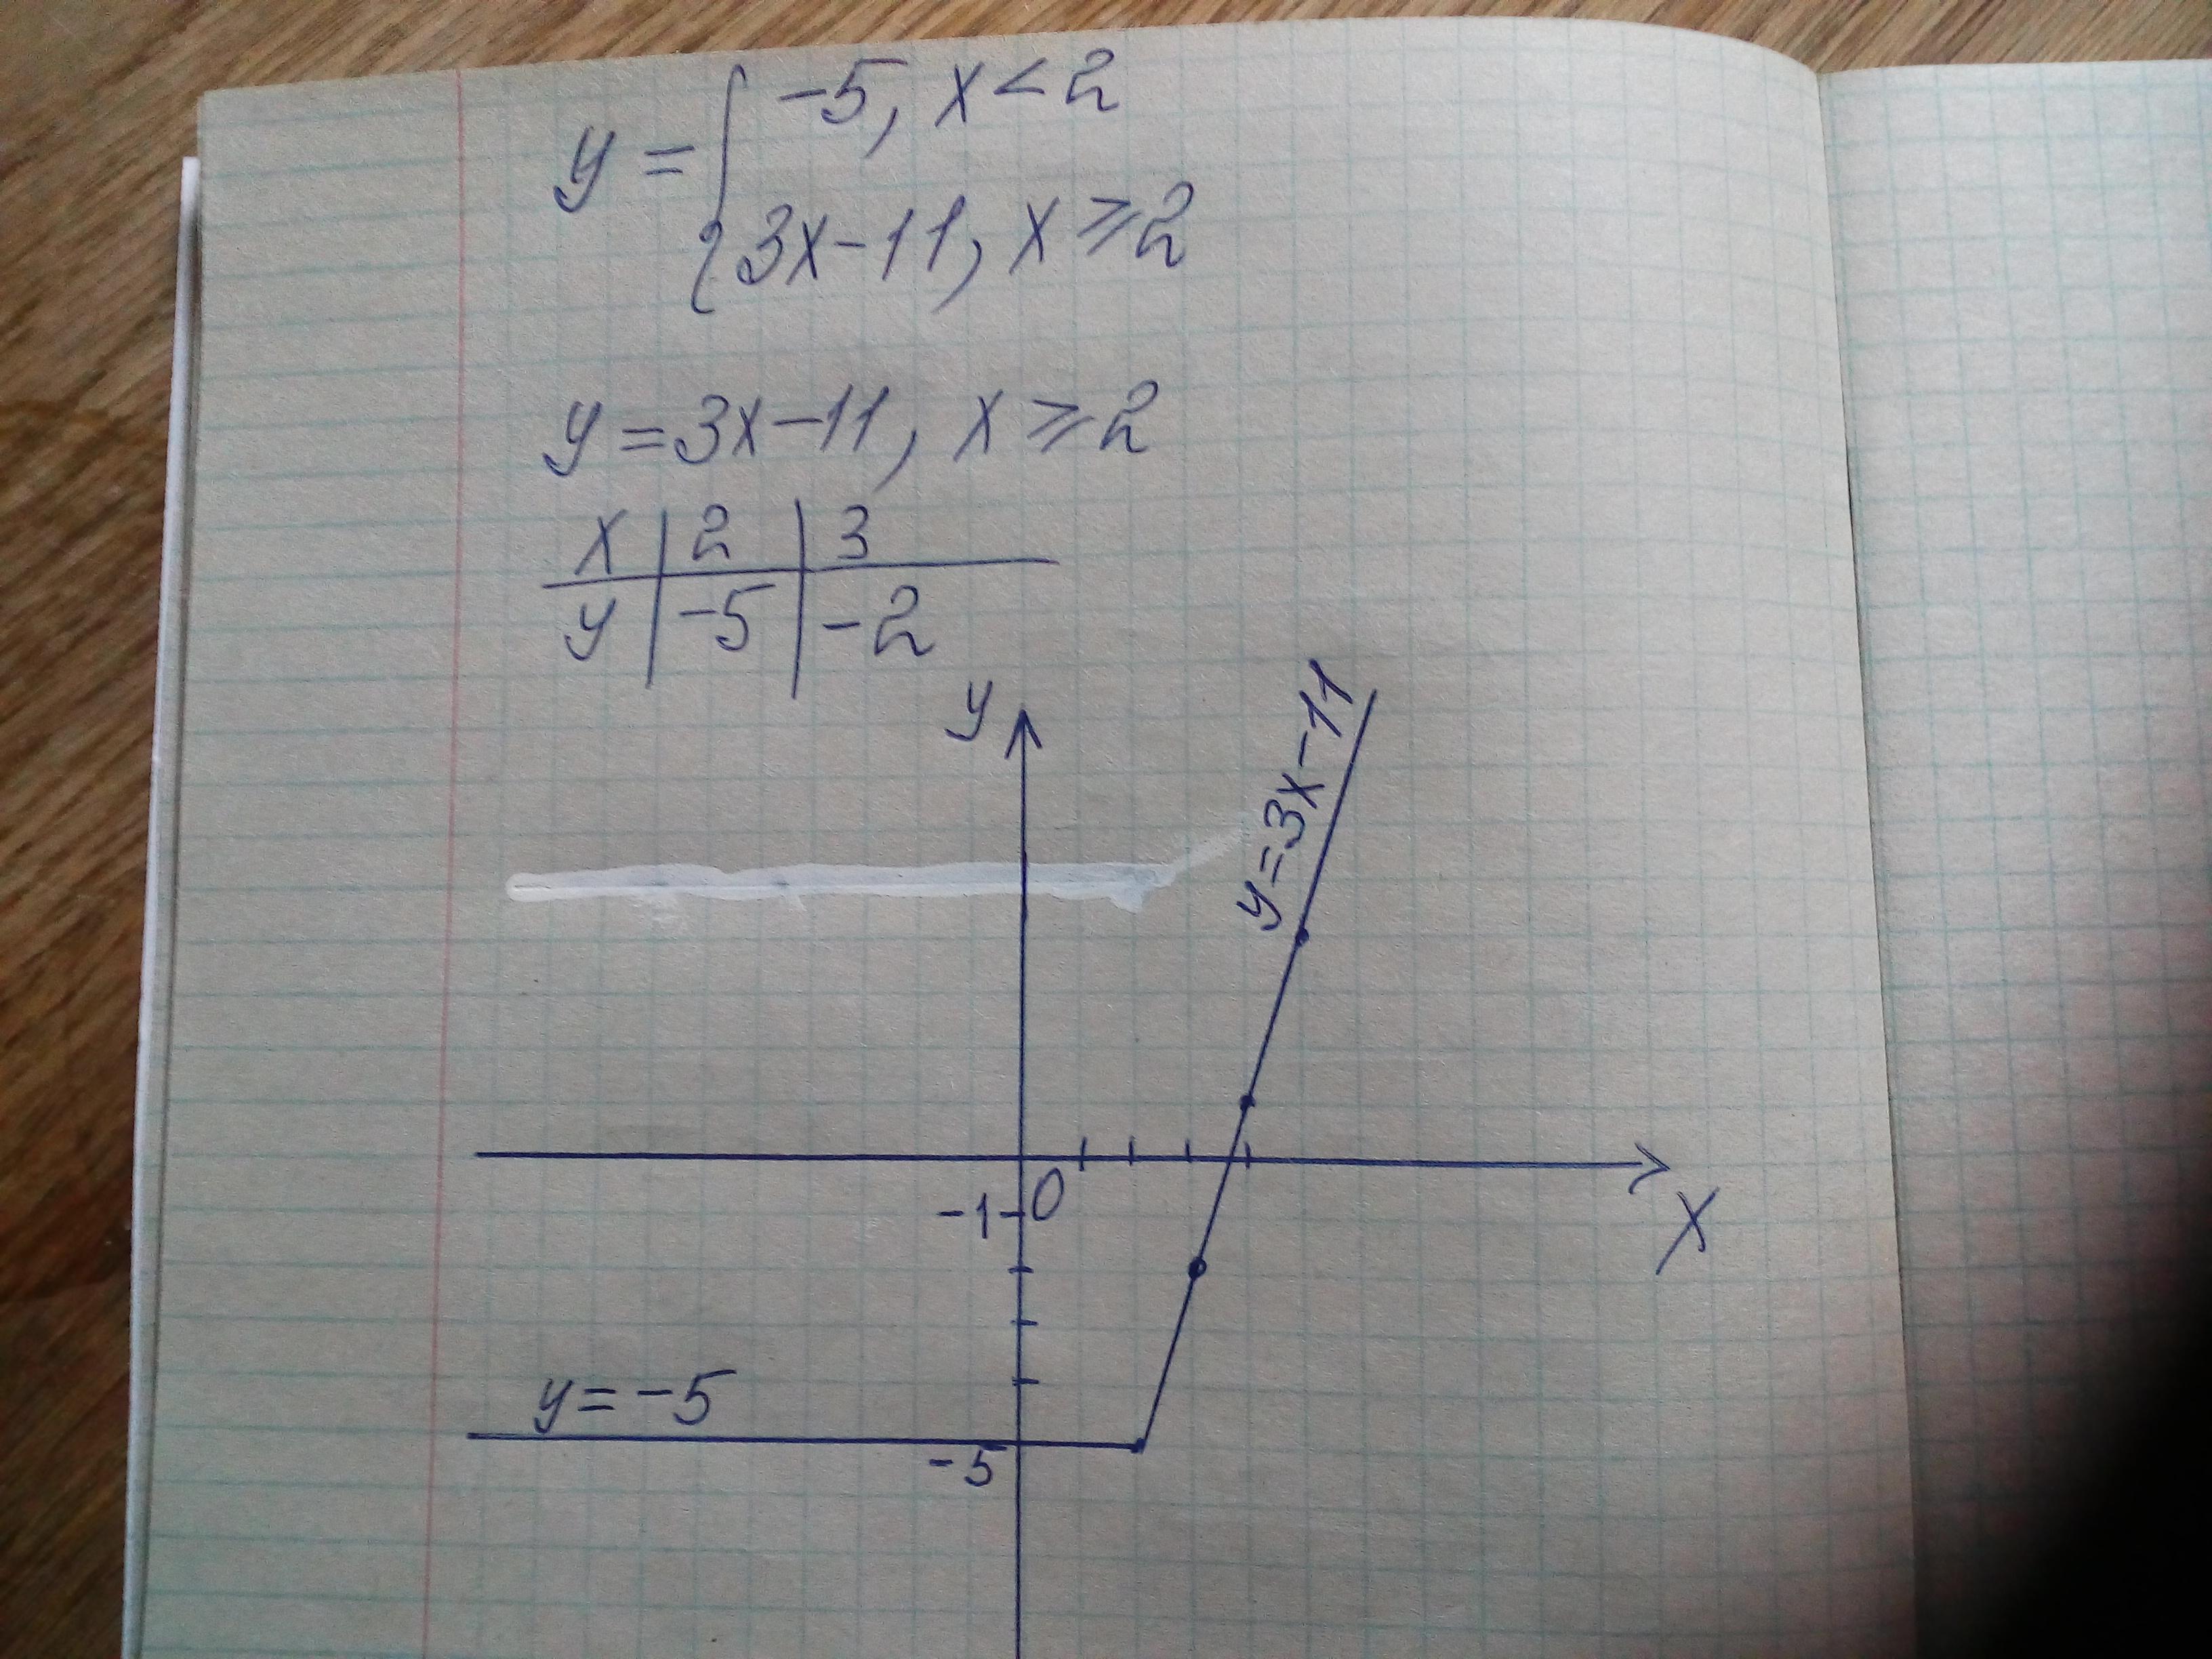 y = { -5, x < 2
3x-11, x ⩾ 2
y = 3x-11, x ⩾ 2
x | 2 | 3
y | -5 | -2
y
y=3x-11
0
-1
x
y=-5
-5